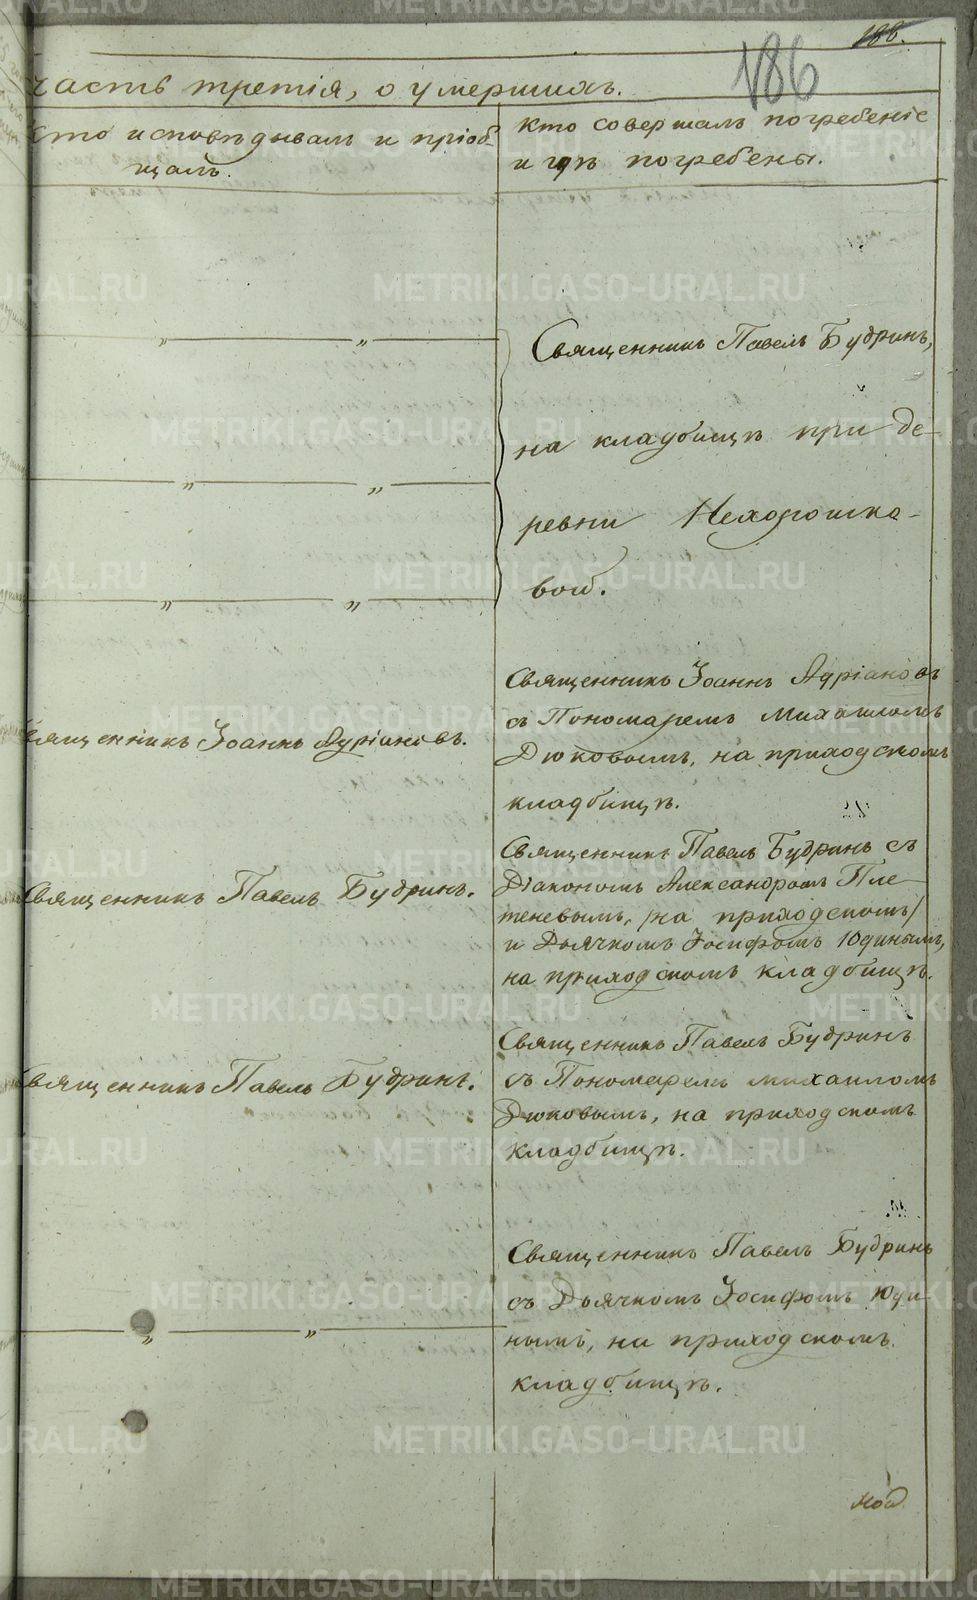 188.
186
часть третія, о умершихъ.
кто исповѣдывалъ и пріоб-
щалъ.
кто совершалъ погребеніе
и гдѣ погребены.
Священникъ Павелъ Будринъ,
на кладбищѣ при де-
ревни Нехорошко-
вой.
Священникъ Іоаннъ Адріановъ.
Священникъ Іоаннъ Адріановъ
съ Пономаремъ Михаиломъ
Дюковымъ, на приходскомъ
кладбищѣ.
Священникъ Павелъ Будринъ.
Священникъ Павелъ Будринъ съ
Діакономъ Александромъ Пле-
теневымъ, /на приходскомъ/
и Дьячкомъ Іосифомъ Юдинымъ,
на приходскомъ кладбищѣ.
Священникъ Павелъ Будринъ.
Священникъ Павелъ Будринъ
съ Пономаремъ Михаиломъ
Дюковымъ, на приходскомъ
кладбищѣ.
Священникъ Павелъ Будринъ
съ Дьячкомъ Іосифомъ Юди-
нымъ, на приходскомъ
кладбищѣ.
METRIKI.GASO-URAL.RU